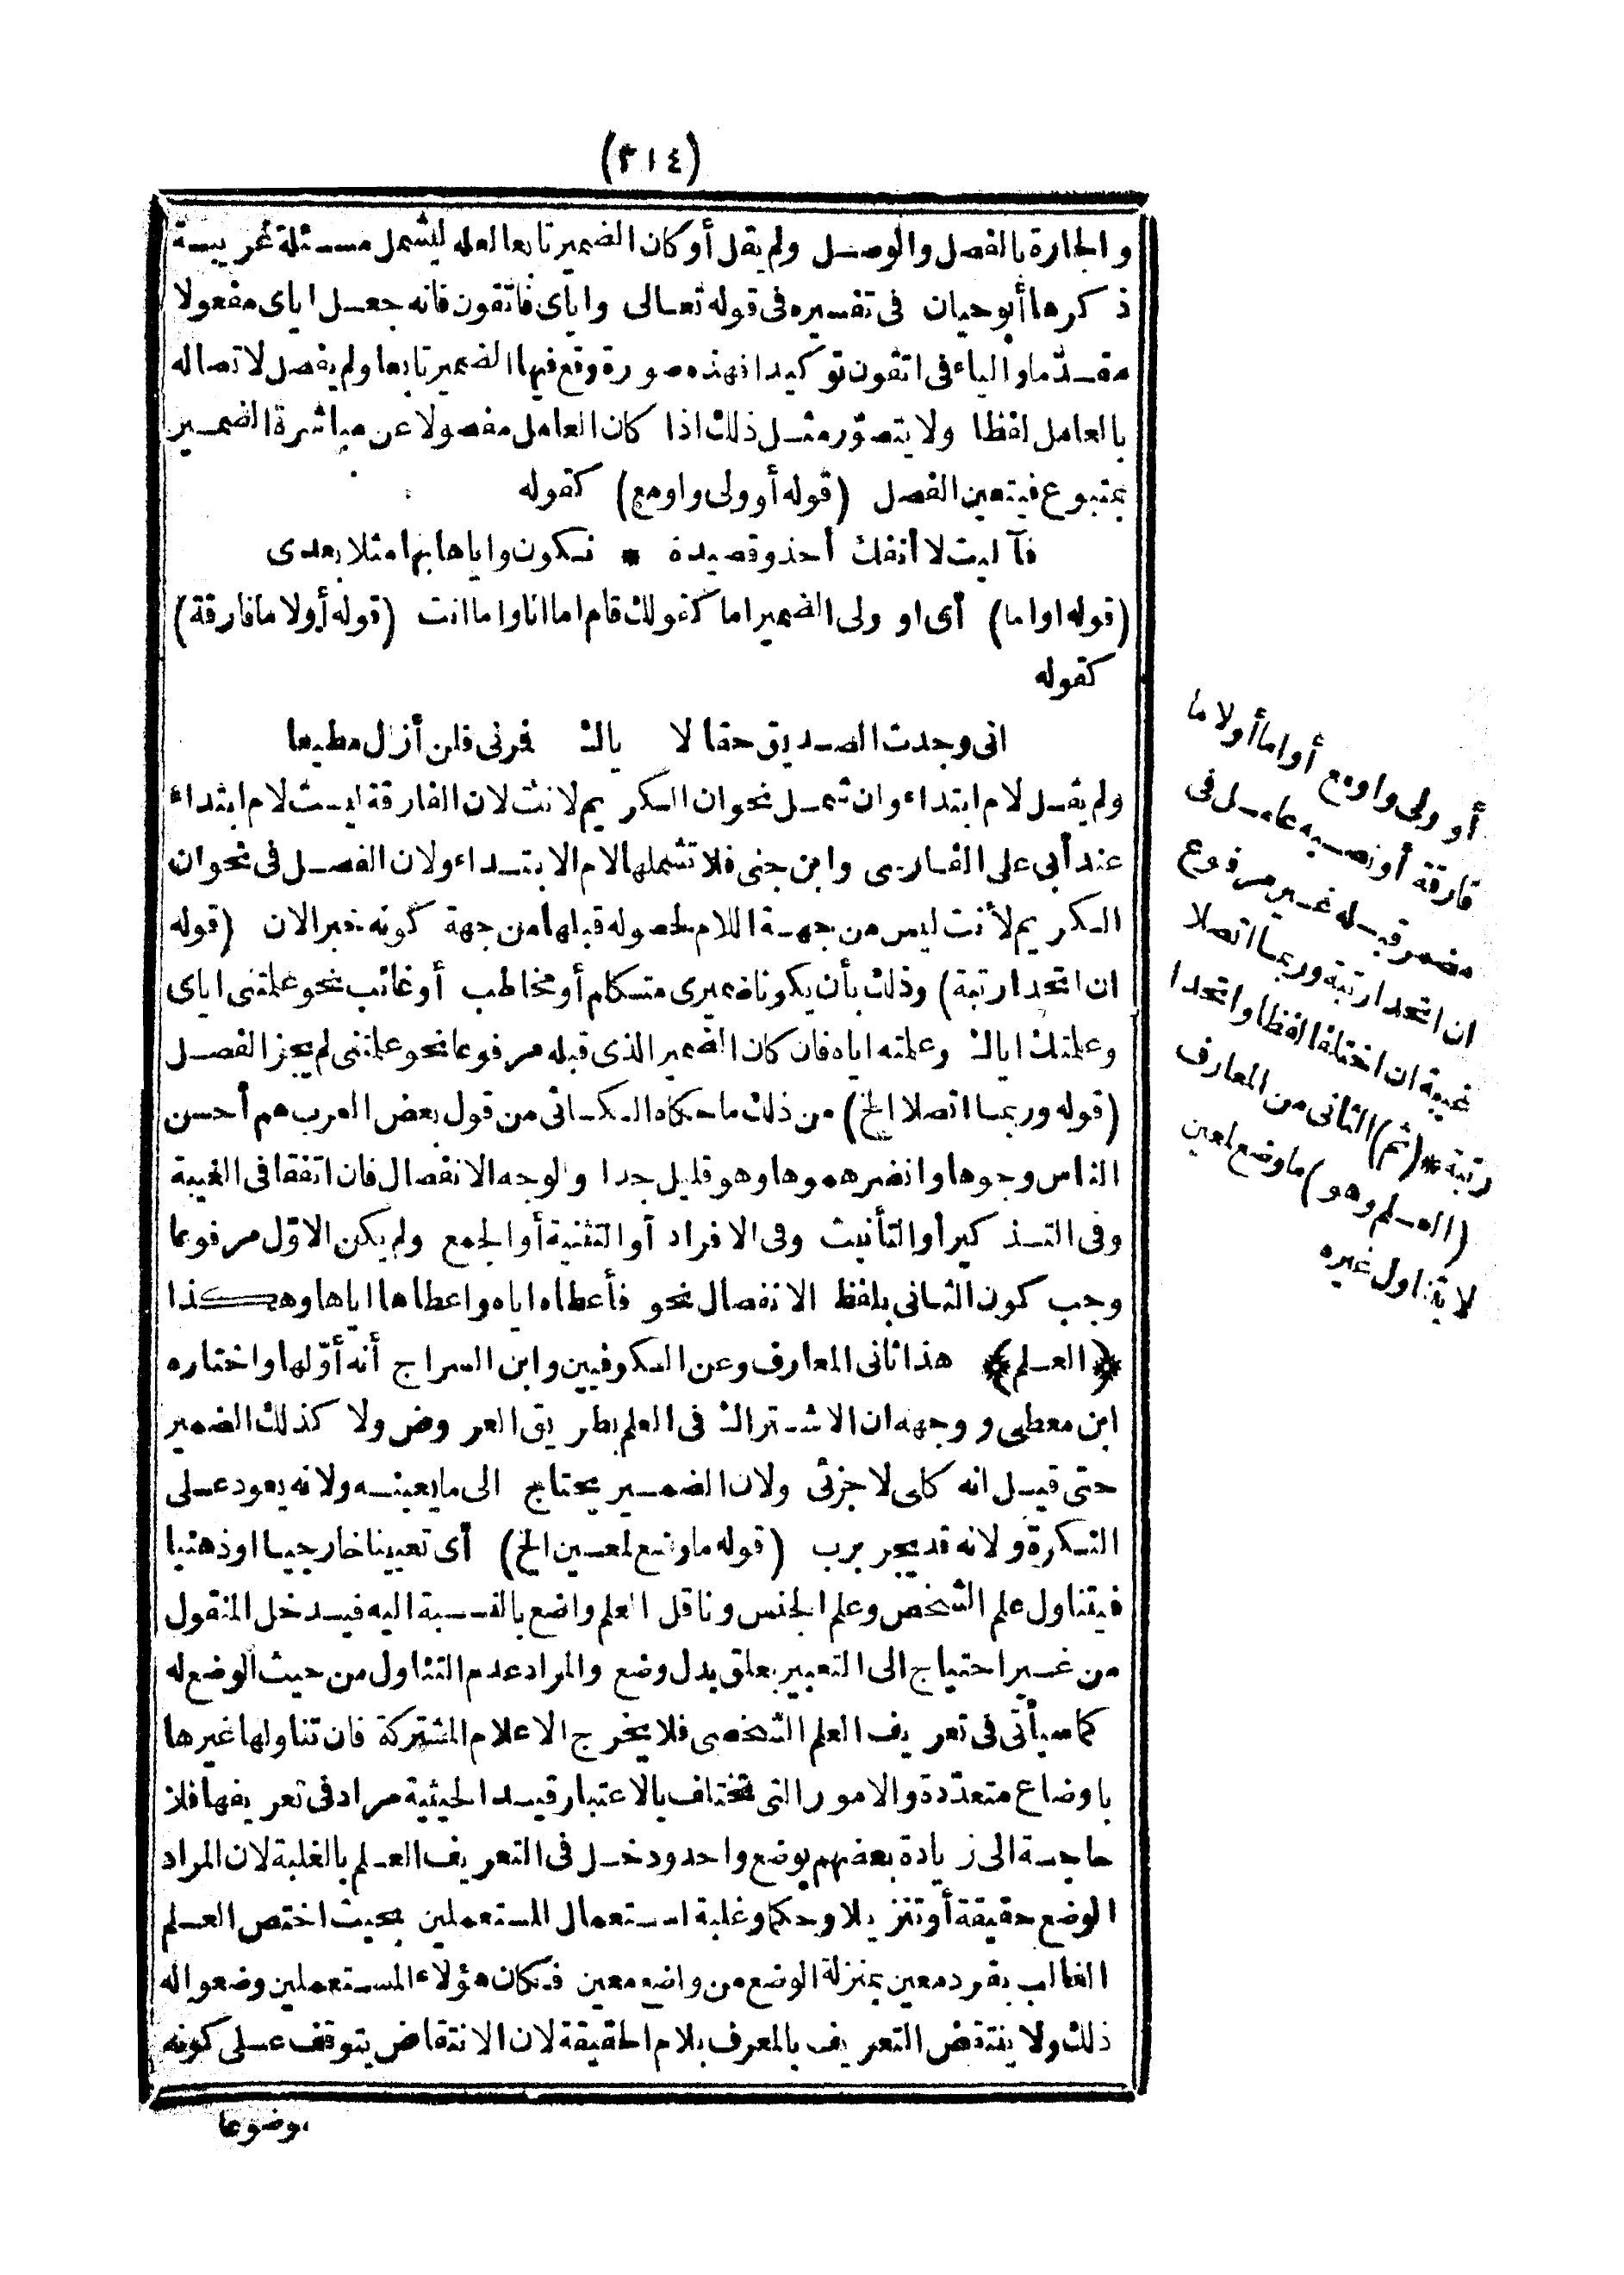 (٣١٤)
والجارة بالفصل والوصل ولم يقل أو كان الضمير تابعا لعله ليشمل مسئلة غريبة
ذكرها أبو حيان فى تفسيره فى قوله تعالى واياى فاتقون فانه جعل اياى مفعولا
مقدّما والياء فى اتقون توكيدا فهذه صورة وقع فيها الضمير تابعا ولم يفصل لاتصاله
بالعامل لفظا ولا يتصوّر مثل ذلك اذا كان العامل مفصولا عن مباشرة الضمير
بمتبوع فيتعين الفصل (قوله أو ولى واو مع) كقوله
فآليت لا أنفك أحذو قصيدة * تكون واياها بها مثلا بعدى
(قوله او اما) أى او ولى الضمير اما كقولك قام اما انا واما انت (قوله أو لاما فارقة)
كقوله
انى وجدت الصديق حقا لا ياك فرنى فلن أزال مطيعا
ولم يقل لام ابتداء وان شمل نحو ان الكريم لانت لان الفارقة ليست لام ابتداء
عند أبى على الفارسى وابن جنى فلا تشملها لام الابتداء ولان الفصل فى نحو ان
الكريم لأنت ليس من جهة اللام لحصوله قبلها من جهة كونه خبر الان (قوله
ان اتحدا رتبة) وذلك بأن يكونا ضميرى متكلم أو مخاطب أو غائب نحو علمتنى اياى
وعلمتك اياك وعلمته اياه فان كان الضمير الذى قبله مرفوعا نحو علمتنى لم يجز الفصل
(قوله وربما اتصلا الخ) من ذلك ما حكاه الكسائى من قول بعض العرب هم أحسن
الناس وجوها وانضرهموها وهو قليل جدا والوجه الانفصال فان اتفقا فى الغيبة
وفى التذكير أو التأنيث وفى الافراد أو التثنية أو الجمع ولم يكن الاوّل مرفوعا
وجب كون الثانى بلفظ الانفصال نحو فأعطاه اياه واعطاها اياها وهكذا
﴿العلم﴾ هذا ثانى المعارف وعن الكوفيين وابن السراج أنه أوّلها واختاره
ابن معطى ووجهه ان الاشتراك فى العلم بطريق العروض ولا كذلك الضمير
حتى قيل انه كلى لا جزئى ولان الضمير يحتاج الى ما يعينه ولانه يعود على
النكرة ولانه قد يجر برب (قوله ما وضع لمعين الخ) أى تعيينا خارجيا او ذهنيا
فيتناول علم الشخص وعلم الجنس وناقل العلم واضع بالنسبة اليه فيدخل المنقول
من غير احتياج الى التعبير بعلق بدل وضع والمراد عدم التناول من حيث الوضع له
كما سيأتى فى تعريف العلم الشخصى فلا يخرج الاعلام المشتركة فان تناولها غيرها
باوضاع متعدّدة والامور التى تختلف بالاعتبار قيد الحيثية مراد فى تعريفها فلا
حاجة الى زيادة بعضهم بوضع واحد ودخل فى التعريف العلم بالغلبة لان المراد
الوضع حقيقة أو تنزيلا وحكما وغلبة استعمال المستعملين بحيث اختص العلم
الغالب بفرد معين بمنزلة الوضع من واضع معين فكان هؤلاء المستعملين وضعوا له
ذلك ولا ينتقض التعريف بالمعرف بلام الحقيقة لان الانتقاض يتوقف على كونه
موضوعا
أو ولى واو مع أو اما أو لاما
فارقة أو نصبه عامل فى
مضمر قبله غير مرفوع
ان اتحدا رتبة وربما اتصلا
غيبة ان اختلفا لفظا واتحدا
رتبة * (ثم) الثانى من المعارف
(العلم وهو) ما وضع لمعين
لا يتناول غيره